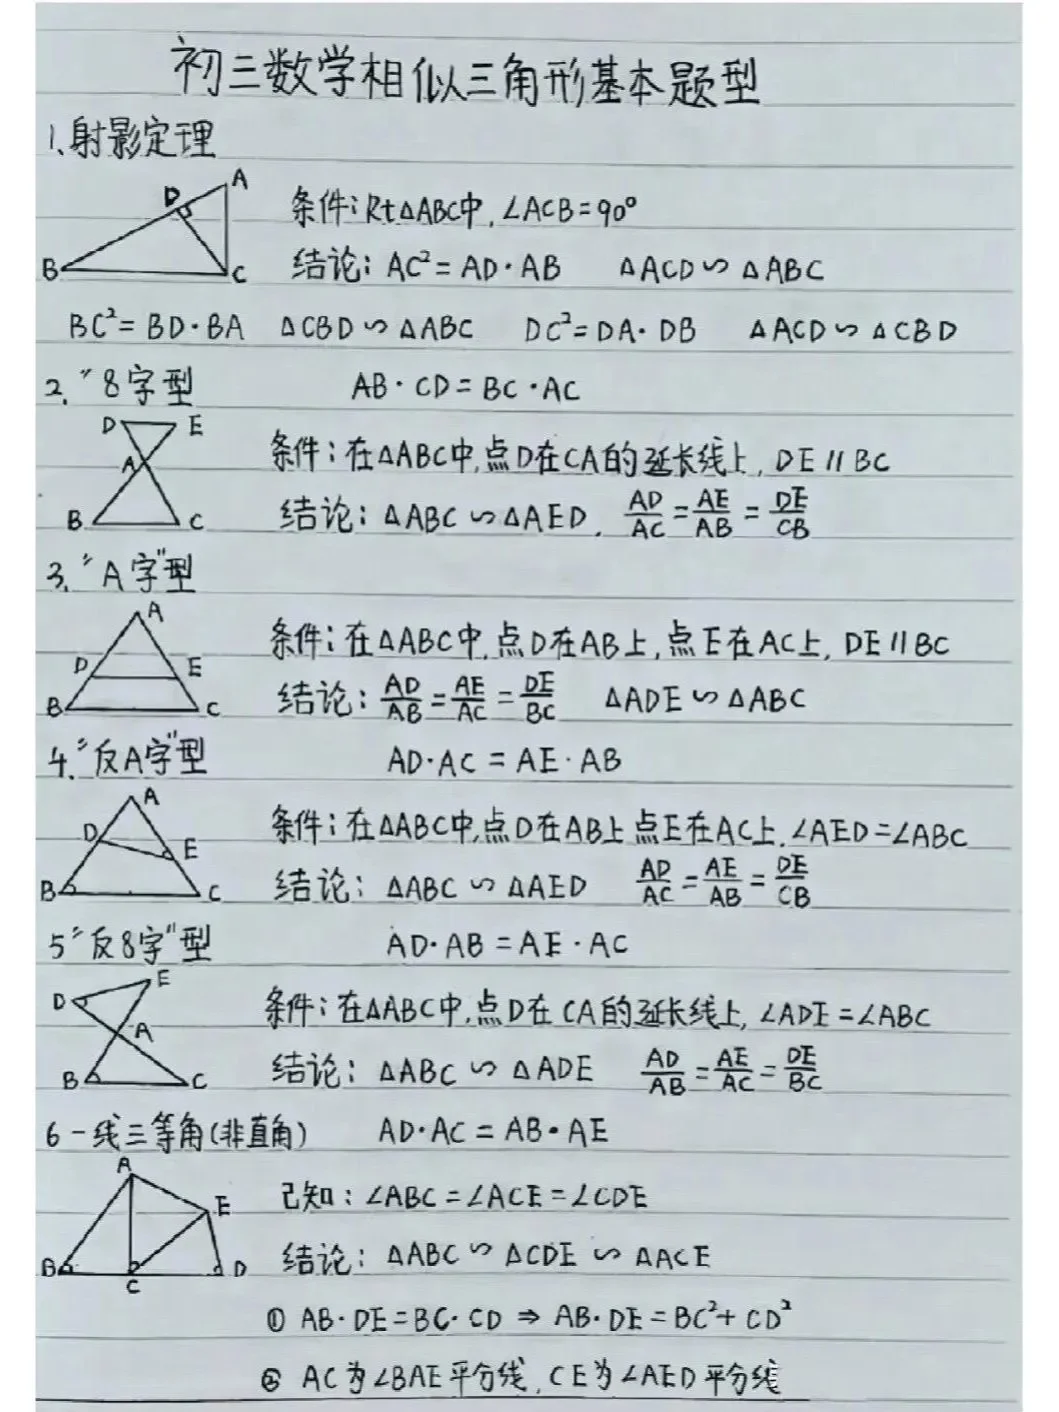 初三数学相似三角形基本题型
1、射影定理
A
D
B
C
条件:Rt△ABC中,∠ACB=90°
结论:AC²=AD·AB △ACD∽△ABC
BC²=BD·BA △CBD∽△ABC DC²=DA·DB △ACD∽△CBD
2."8字型 AB·CD=BC·AC
D E
A
B C
条件:在△ABC中,点D在CA的延长线上,DE∥BC
结论:△ABC∽△AED, AD/AC=AE/AB=DE/CB
3."A字"型
A
D E
B C
条件:在△ABC中,点D在AB上,点E在AC上,DE∥BC
结论:AD/AB=AE/AC=DE/BC △ADE∽△ABC
4."反A字"型 AD·AC=AE·AB
A
D E
B C
条件:在△ABC中,点D在AB上点E在AC上,∠AED=∠ABC
结论:△ABC∽△AED AD/AC=AE/AB=DE/CB
5"反8字"型 AD·AB=AE·AC
E
D
A
B C
条件:在△ABC中,点D在CA的延长线上,∠ADE=∠ABC
结论:△ABC∽△ADE AD/AB=AE/AC=DE/BC
6一线三等角(非直角) AD·AC=AB·AE
A
E
B D
C
已知:∠ABC=∠ACE=∠CDE
结论:△ABC∽△CDE∽△ACE
① AB·DE=BC·CD⇒AB·DE=BC²+CD²
② AC为∠BAE平分线,CE为∠AED平分线